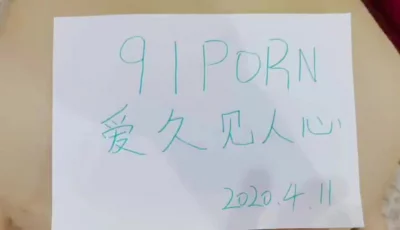 91PORN
爱久见人心
2020.4.11